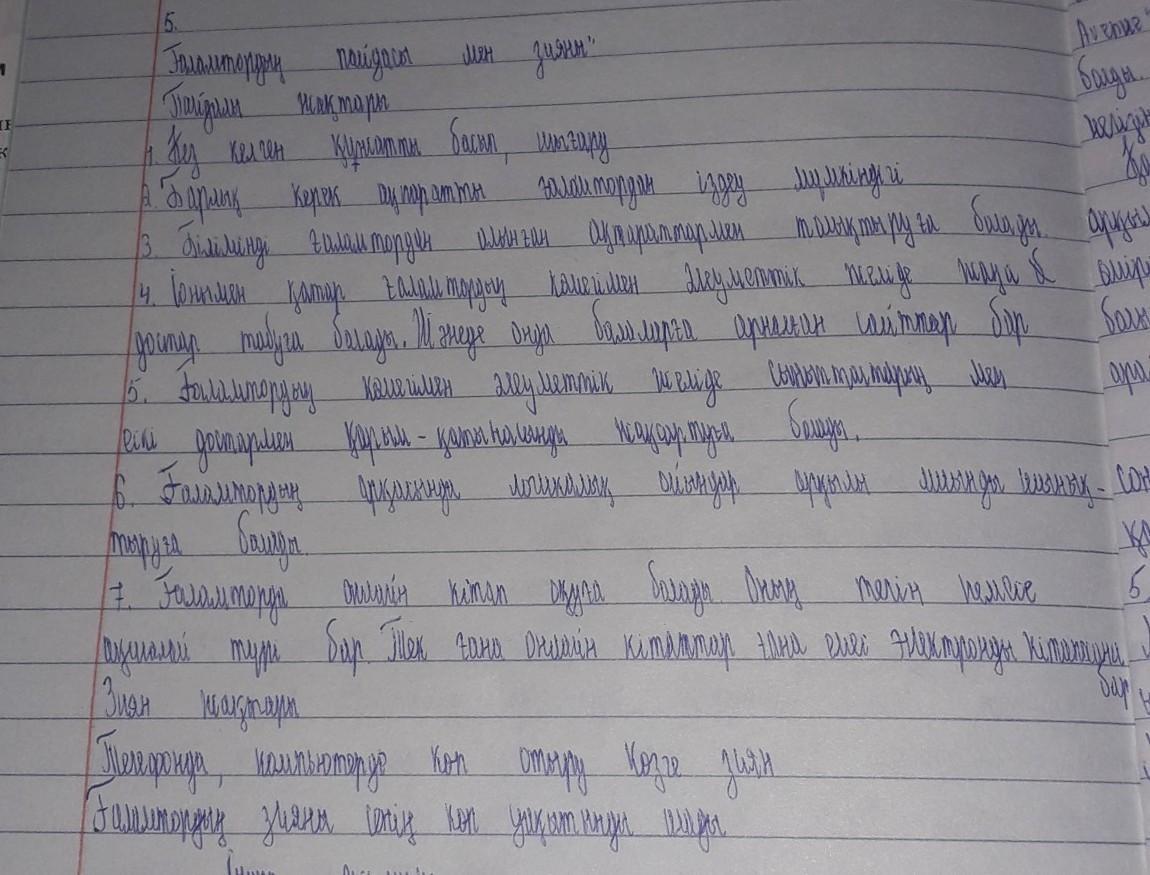 5.
Ғаламтордың пайдасы мен зияны"
Пайдалы жақтары
1. Кез келген құжатты басып, шығару
2. Барлық керек ақпаратты ғаламтордан іздеу мүмкіндігі
3. Білімінді ғаламтордан алынған ақпараттармен толықтыруға болады.
4. Сонымен қатар ғаламтордың көмегімен әлеуметтік желіде жаңа
достар табуға болады. Және онда балаларға арналған сайттар бар
5. Ғаламтордың көмегімен әлеуметтік желіде сыныптастарың мен
ескі достармен қарым-қатынасынды жақсартуға болады.
6. Ғаламтордың арқасында логикалық ойындар арқылы миынды шынық-
тыруға болады.
7. Ғаламторда онлайн кітап оқуға болады Оның тегін немесе
ақшалай түрі бар. Тек ғана онлайн кітаптар ғана емес электронды
бар
Зиян жақтары
Телефонда, компьютерде көп отыру көзге зиян
Ғаламтордың зияны сенің көп уақытынды алады
болды.